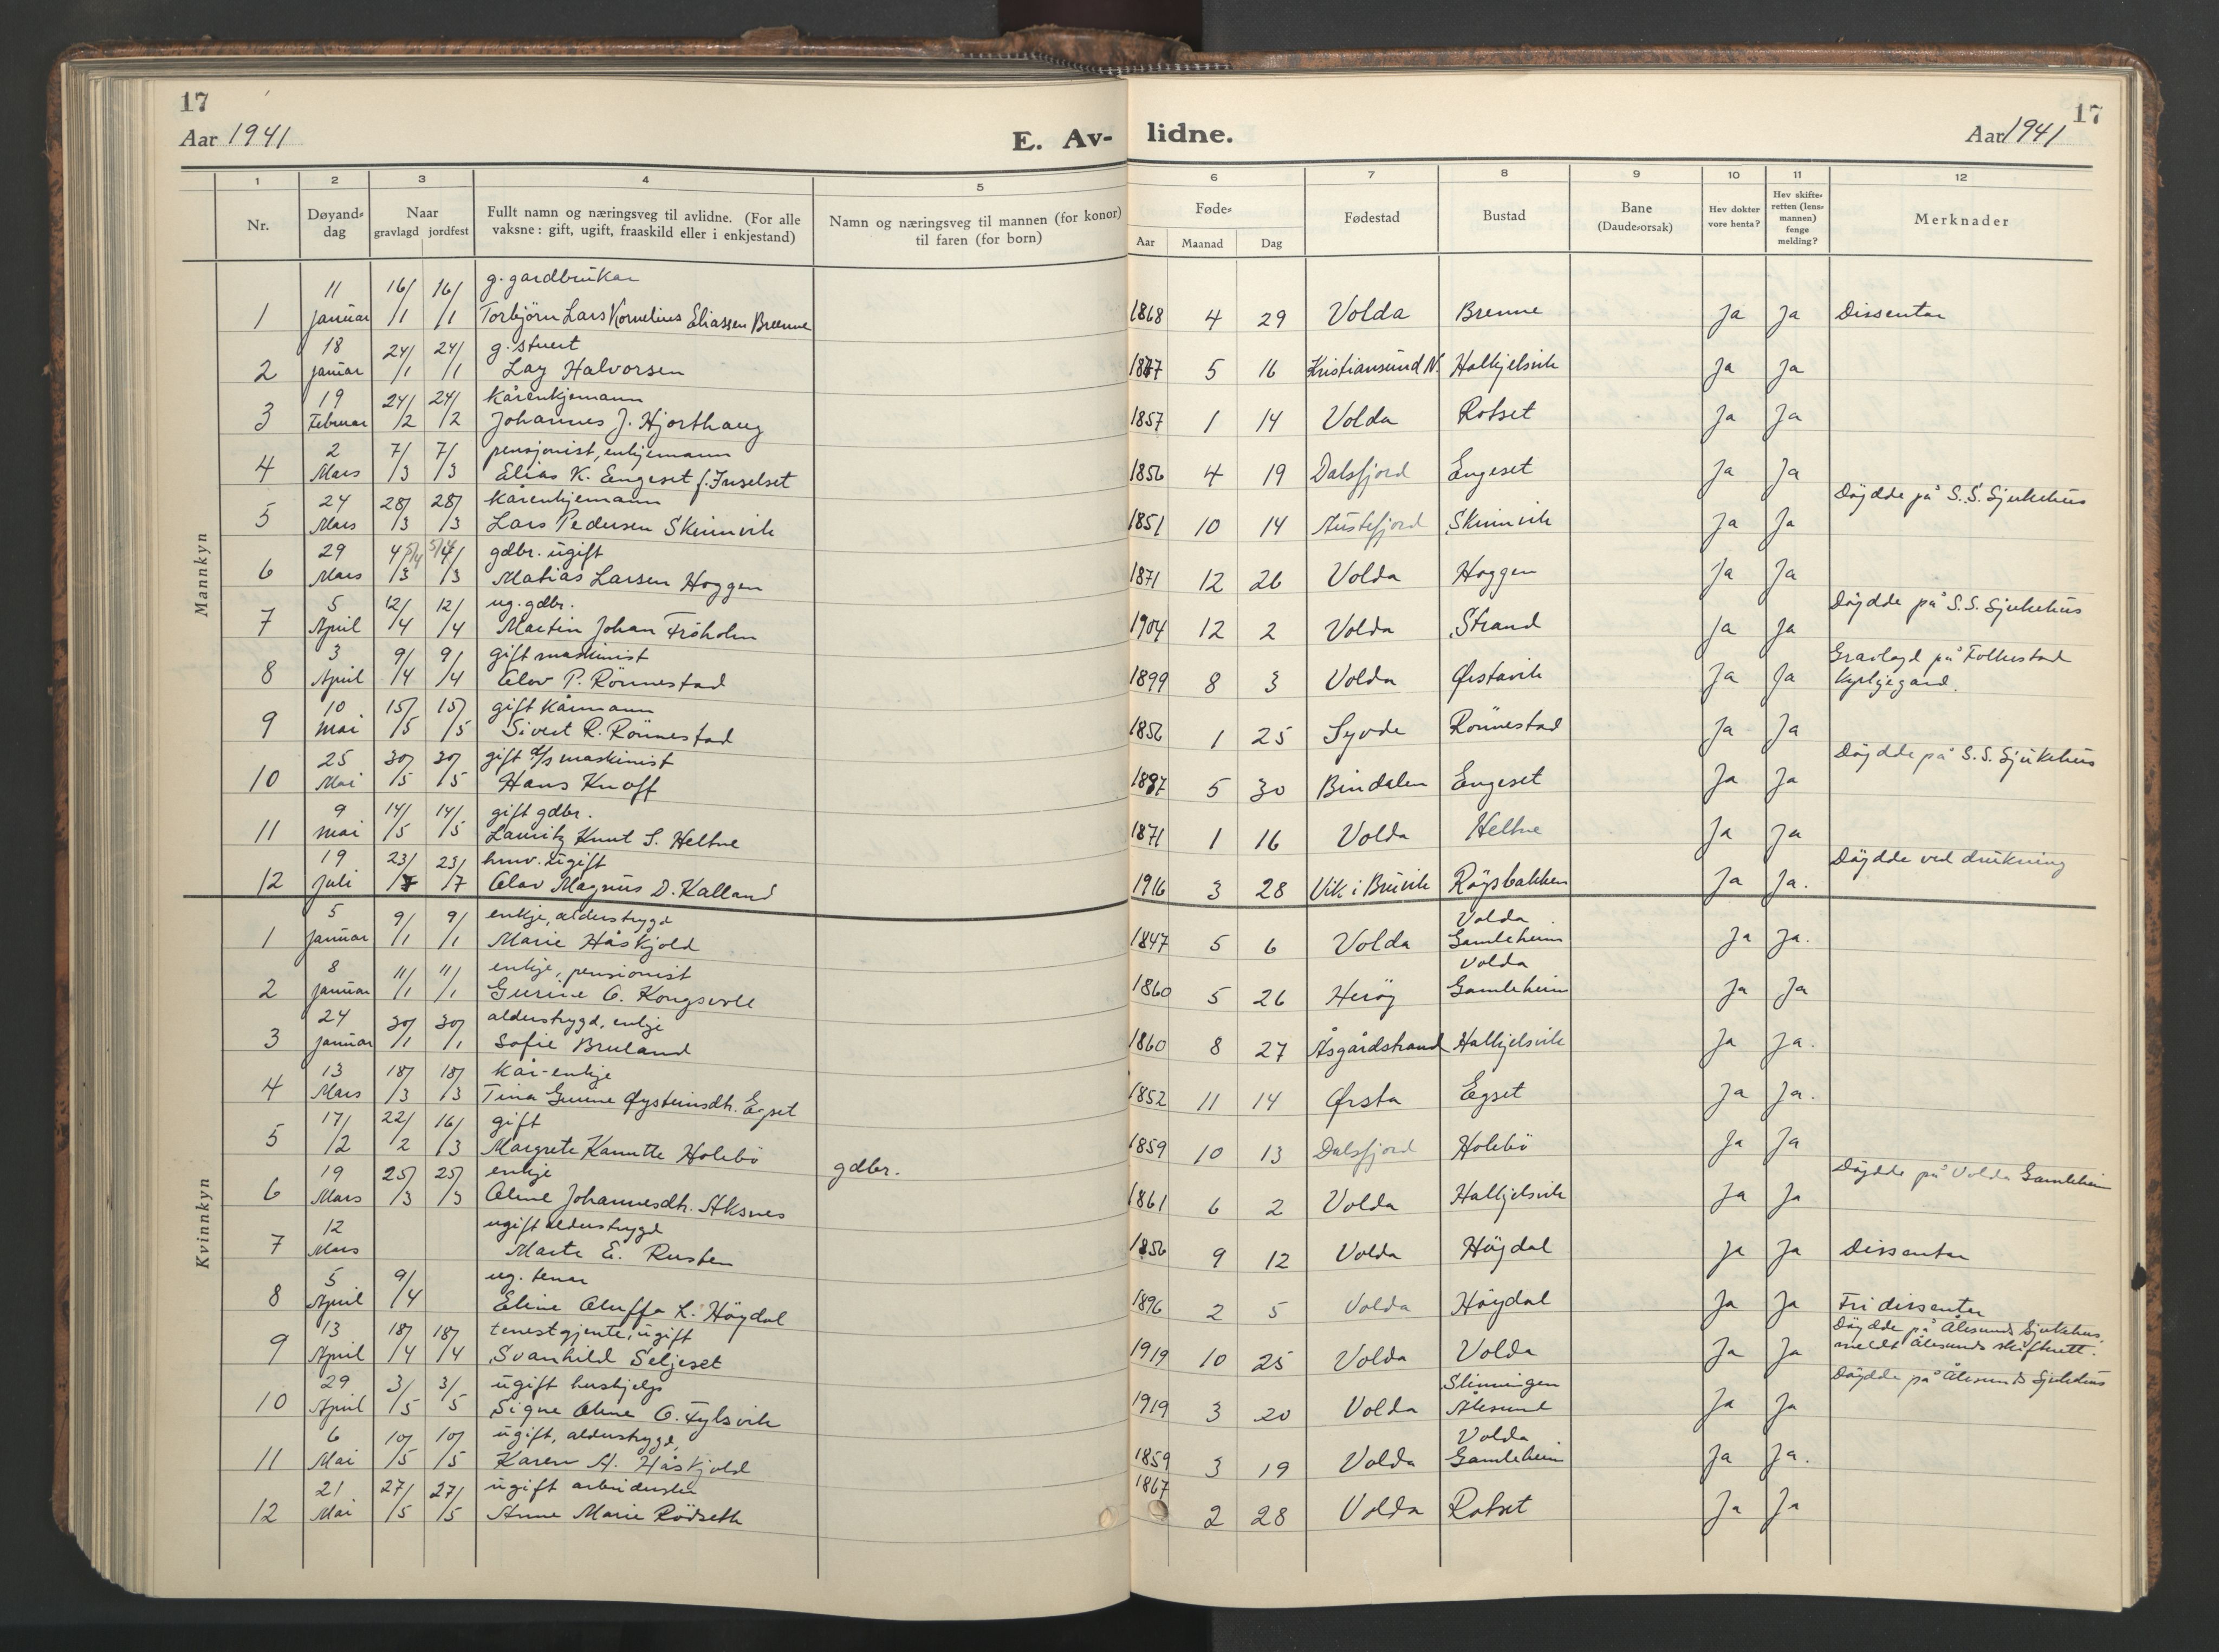 17
17
Aar 1941
E. Av-
lidne.
Aar 1941
1 2 3 4 5 6 7 8 9 10 11 12
Nr.
Døyand-
dag
Naar
gravlagd jordfest
Fullt namn og næringsveg til avlidne. (For alle
vaksne: gift, ugift, fraaskild eller i enkjestand)
Namn og næringsveg til mannen (for konor)
til faren (for born)
Føde-
Aar Maanad Dag
Fødestad
Bustad
Bane
(Daude-orsak)
Hev dokter
vore henta?
Hev skifte-
retten (lens-
mannen)
fenge
melding?
Merknader
Mannkyn
11 16/ 16/ g. gardbrukar
1 januar /1 /1 Torbjörn Lars Kornelius Eliassen Brenne 1868 4 29 Volda Brenne Ja Ja Dissentar
18 24/ 24/ g. stuert
2 januar /1 /1 Lay Halvorsen 1877 5 16 Kristiansund N. Halkjelsvik Ja Ja
19 24/ 24/ kårenkjemann
3 Februar /2 /2 Johannes J. Hjorthaug 1857 1 14 Volda Rotset Ja Ja
2 7/ 7/ pensjonist, enkjemann
4 Mars /3 /3 Elias K. Engeset f. Inselset 1856 4 19 Dalsfjord Engeset Ja Ja
24 28/ 28/ kårenkjemann Döydde på S.S. Sjukehus
5 Mars /3 /3 Lars Pedersen Skinnvik 1851 10 14 Austefjord Skinnvik Ja Ja
29 4/ 5/4 5/4 4/ gdbr. ugift
6 Mars /3 /3 Matias Larsen Hoggen 1871 12 26 Volda Hoggen Ja Ja
5 12/ 12/ ug. gdbr. Döydde på S.S. Sjukehus
7 April /4 /4 Martin Johan Fröholm 1904 12 2 Volda Strand Ja Ja
3 9/ 9/ gift maskinist Gravlagd på Folkestad
8 April /4 /4 Olov P. Rönnestad 1899 8 3 Volda Ørstavik Ja Ja Kyrkjegard.
10 15/ 15/ gift kårmann
9 mai /5 /5 Sivert R. Rönnestad 1856 1 25 Syvde Rönnestad Ja Ja
25 30/ 30/ gift d/s maskinist Döydde på S.S. Sjukehus
10 Mai /5 /5 Hans Knoff 1887 5 30 Bindalen Engeset Ja Ja
9 14/ 14/ gift gdbr.
11 mai /5 /5 Lauritz Knut S. Heltne 1871 1 16 Volda Heltne Ja Ja
19 23/ 23/ ugift Döydde ved drukning
12 juli /7 /7 Olav Magnus D. Kalland 1916 3 28 Vik i Bruvik Röysbakken Ja Ja.
Kvinnkyn
5 9/ 9/ enkje, alderstrygd Volda
1 januar /1 /1 Marie Håskjold 1847 5 6 Volda Gamleheim Ja Ja.
8 11/ 11/ enkje, pensionist Volda
2 januar /1 /1 Gurine O. Kongsvoll 1860 5 26 Heröy Gamleheim Ja Ja
24 30/ 30/ alderstrygd, enkje
3 januar /1 /1 Sofie Bruland 1860 8 27 Åsgårdstrand Halkjelsvik Ja Ja.
13 18/ 18/ kår-enkje
4 Mars /3 /3 Tina Gurine Øysteinsdtr. Egset 1852 11 14 Ørsta Egset Ja Ja.
17/ 22/ 16/ gift
5 /2 2 /3 Margrete Kanutte Holebö gdbr. 1859 10 13 Dalsfjord Holebö Ja Ja
19 25/ 25/ enkje Döydde på Volda Gamleheim
6 Mars /3 /3 Oline Johannesdtr. Aksnes 1861 6 2 Volda Halkjelsvik Ja Ja
12 ugift alderstrygd
7 Mars Marte E. Rusten 1856 9 12 Volda Högdal Ja Ja Dissentar
5 9/ ug. tenar
8 April /4 Eline Oluffa L. Högdal 1896 2 5 Volda Högdal Ja Ja Fri dissentar
13 18/ 18/ tenestgjente, ugift Döydde på Ålesunds Sjukehus.
9 April /4 /4 Svanhild Seljeset 1919 10 25 Volda Volda Ja Ja meldt Ålesunds skifterett.
29 3/ 3/ ugift hushjelp Slinningen Döydde på Ålesunds Sjukehus
10 April /5 5 Signe Oline O. Fylsvik 1919 3 20 Volda Ålesund Ja Ja
6 10/ 10/ ugift, alderstrygd, Volda
11 Mai /5 /5 Karen A. Håskjold 1859 3 19 Volda Gamleheim Ja Ja.
21 27/ 27/ ugift arbeiderske
12 Mai /5 /5 Anne Marie Rödseth 1867 2 28 Volda Rotset Ja Ja